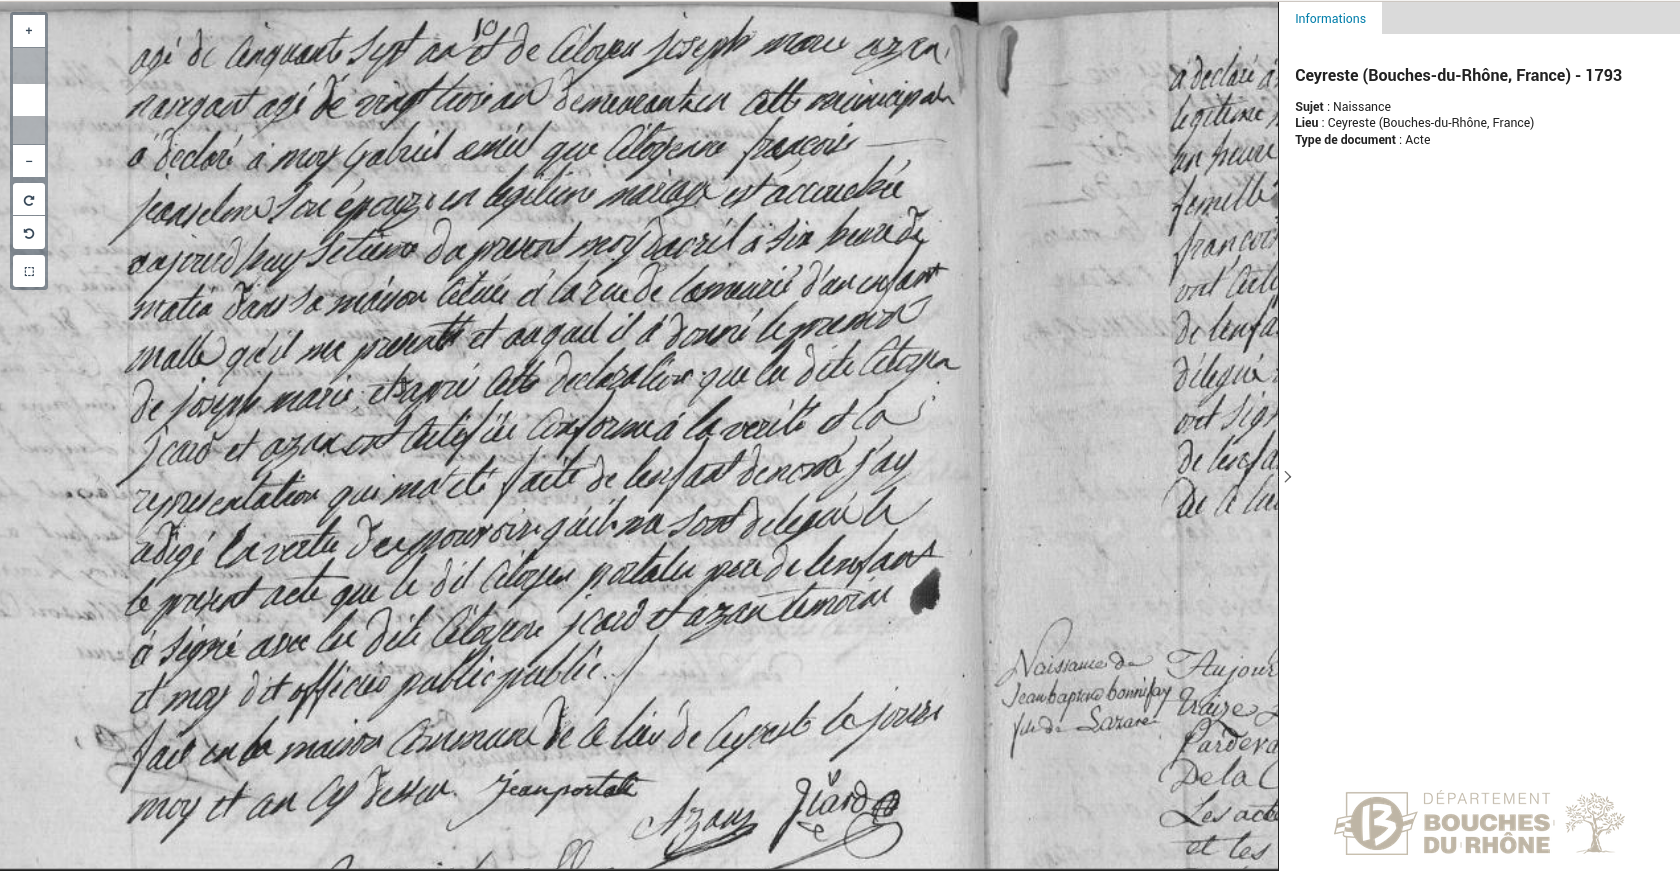 agé de cinquante sept an et de Citoyen joseph marie azan
10
agé de vingt trois an demeurant en cette municipal
á declaré á moy Gabriel que Citoyenne francoise
son épouze en legitime mariage est accouchée
aujourd'huy setieme du present moy d'avril á six heure de
matin dans sa maison cituée á la rue de d'un enfant
malle qu'il ma presenté et auquel il á donné le prenom
de joseph marie et apré cette declaration que les dits Citoyen
jcard et azan ont certifiée conforme á la verité et la
representation qui ma été faite de lenfant denomé j'ay
redigé en vertu des pouvoirs qui me sont delegué
le present acte que le dit Citoyen portalis pere de lenfant
á signé avec les dits Citoyens jcard et azan temoins
et moy dit officier public public.
fait en la maison Commune de ce lieu de Ceyreste le jour
moy et an cy dessus. Jean portalis
Azan Jiard
á declaré á
legitime
un heure
femelle
francois
ont certi
de lenfa
délégué
ont sign
de lenfa
de ce lieu
Naissance de
Jean baptiste bonnifay
fils de Lazare
Aujour
traize
Pardeva
De la C
Les acte
et les
Informations
Ceyreste (Bouches-du-Rhône, France) - 1793
Sujet : Naissance
Lieu : Ceyreste (Bouches-du-Rhône, France)
Type de document : Acte
DÉPARTEMENT
BOUCHES
DU RHÔNE